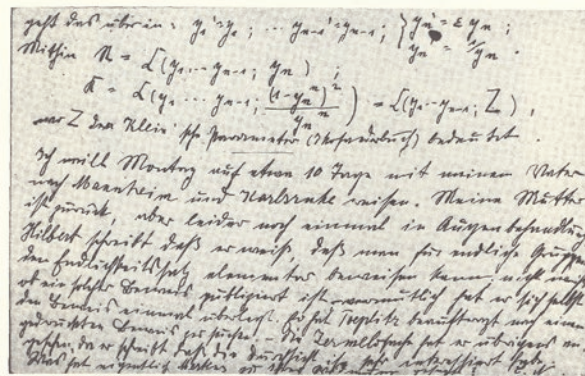 geht das über in: y₁' = y₁; ... y'ₙ₋₁ = yₙ₋₁; { yₙ' = ε yₙ ;
yₙ' = 1/yₙ .
Mithin N = L(y₁ ... yₙ₋₁; yₙ) ;
K = L(y₁ ... yₙ₋₁; (1-yₙⁿ)²/yₙⁿ) = L(y₁ ... yₙ₋₁; Z) ,
wo Z den Klein'schen Parameter (Ikosaederbuch) bedeutet.
Ich will Montag auf etwa 10 Tage mit meinem Vater
nach Mannheim und Karlsruhe reisen. Meine Mutter
ist zurück, aber leider noch einmal in Augenbehandlung
Hilbert schreibt daß er weiß, daß man für endliche Gruppen
den Endlichkeitssatz elementar beweisen kann, nicht mehr
ob ein solcher Beweis publiziert ist – vermutlich hat er sich selbst
den Beweis einmal überlegt. Er hat Toeplitz beauftragt nach einem
gedruckten Beweis zu suchen. – Die hat er übrigens an
gesehen, da er schreibt daß die Durchsicht ihn sehr interessiert habe.
Was hat eigentlich